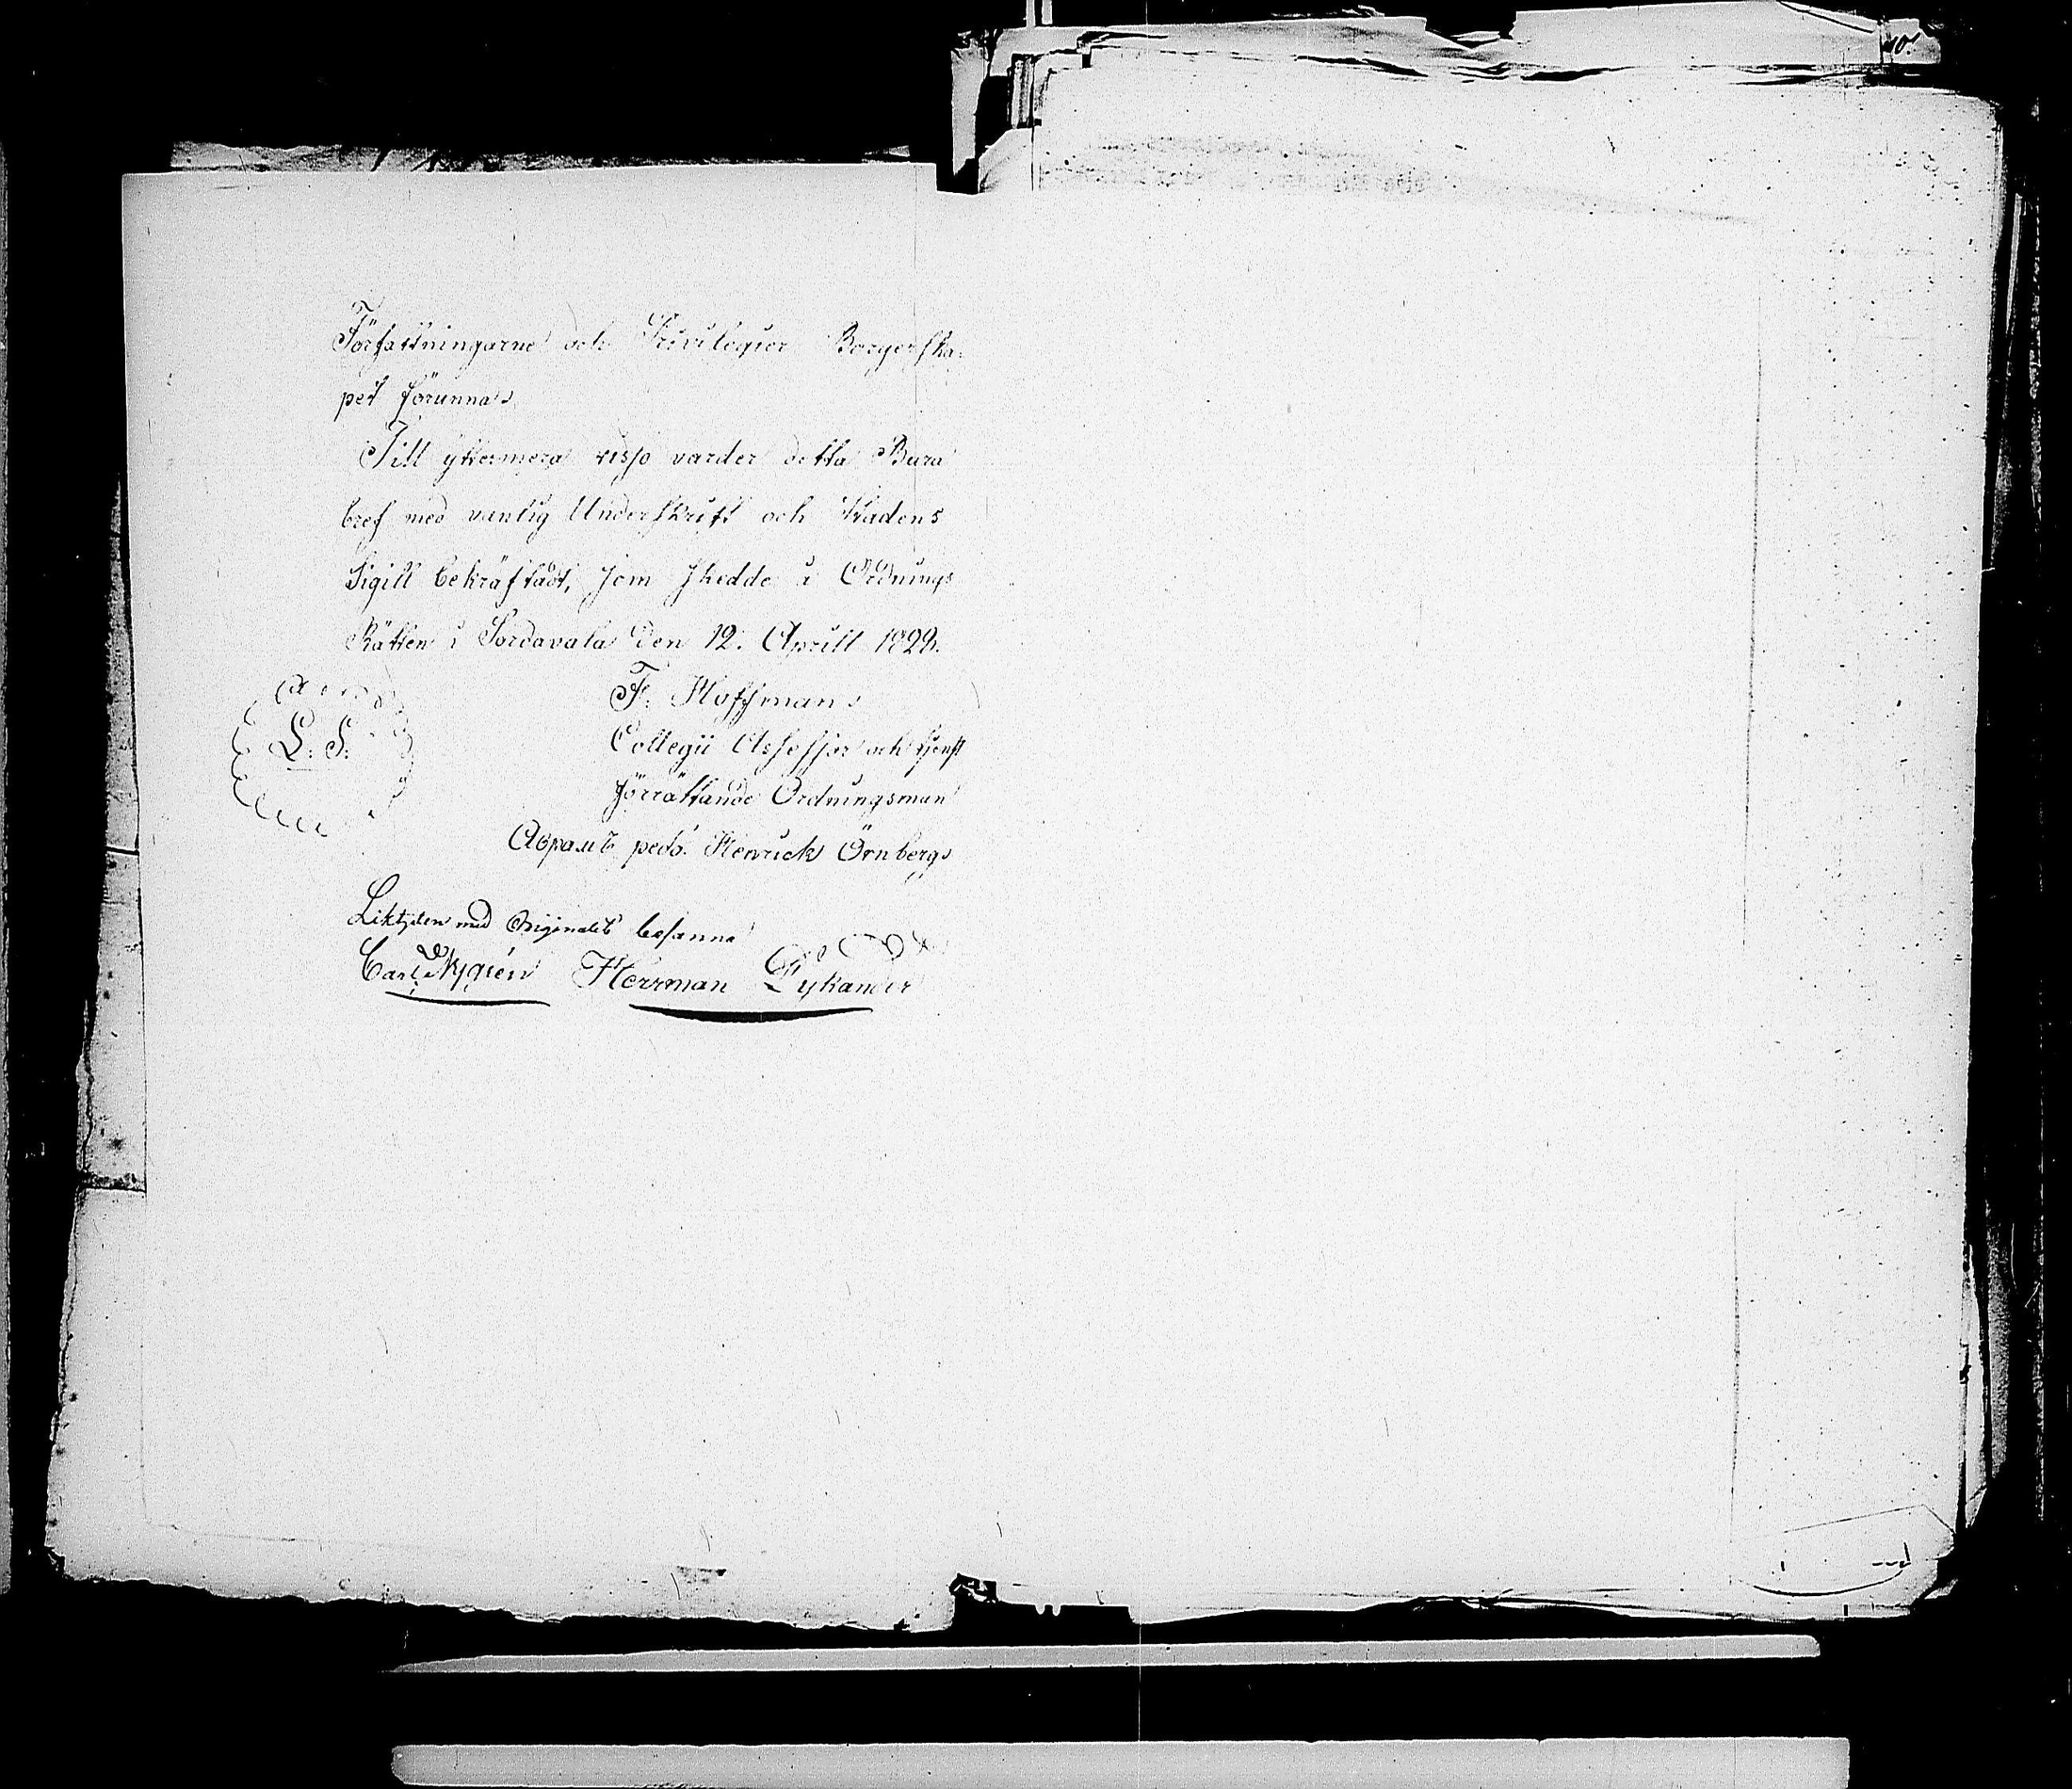 Författningarne och Privilegier Borgerska-
pet förunna
Till yttermera visso varder detta Bura
bref med vanlig Underskrift och Stadens
Sigill bekräftadt, som skedde i Ordnings
Rätten i Sordavala den 12. Aprill 1829.
F. Hoffman
L. S.
Collegii Assessor och tjenst
förrättande Ordningsman
Абрамъ Henrick Örnberg
Liktyden med Originalet besanna
Carl Herrman Lykander